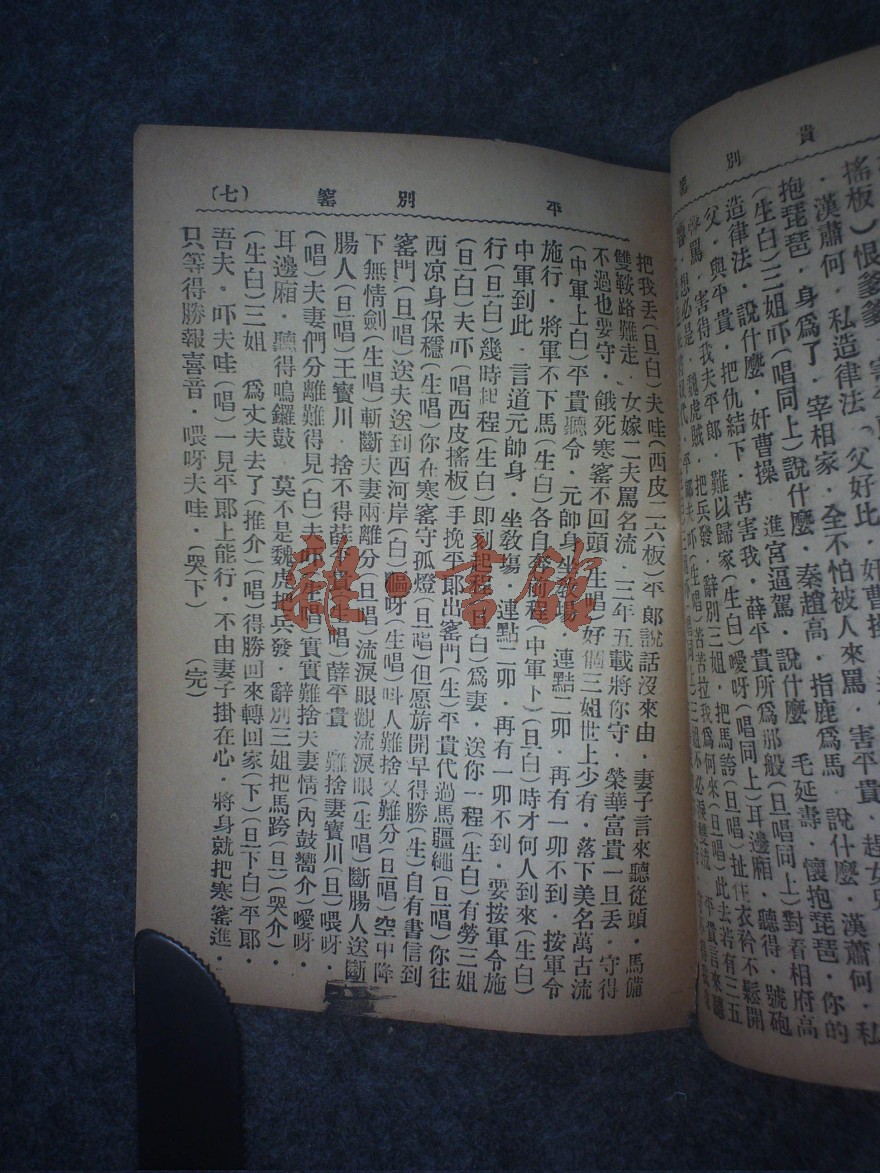 貴別窰
搖板）恨爹爹
漢蕭何．私造律法．父好比．奸曹操
抱琵琶．身爲了．宰相家．全不怕被人來罵．害平貴．趕女兒
（生白）三姐吓（唱同上）說什麼．秦趙高．指鹿爲馬．說什麼．漢蕭何．私
造律法．說什麼．奸曹操．進宮逼駕．說什麼．毛延壽．懷抱琵琶．你的
父．與平貴．把仇結下．苦害我．薛平貴所爲那般（旦唱同上）對看相府高
罵．害得我夫平郎．難以歸家（生白）噯呀（唱同上）耳邊廂．聽得．號砲
想必是．魏虎賊．把兵發．辭別三姐．把馬誇（旦唱）扯住衣衿不鬆開
平郎夫吓（生唱）苦苦拉我爲何來（旦唱）此去若有三五
平別窰（七）
把我丢（旦白）夫哇（西皮二六板）平郎說話沒來由．妻子言來聽從頭．馬備
雙鞍路難走．女嫁二夫罵名流．三年五載將你守．榮華富貴一旦丢．守得
不過也要守．餓死寒窰不回頭（生唱）好個三姐世上少有．落下美名萬古流
（中軍上白）平貴聽令．元帥身坐敎塲．連點二卯．再有一卯不到．按軍令
施行．將軍不下馬（生白）各自奔前程（中軍下）（旦白）時才何人到來（生白）
中軍到此．言道元帥身．坐敎塲．連點二卯．再有一卯不到．要按軍令施
行（旦白）幾時起程（生白）即刻起程（旦白）爲妻．送你一程（生白）有勞三姐
（旦白）夫吓（唱西皮搖板）手挽平郎出窰門（生）平貴代過馬疆繩（旦唱）你往
西凉身保穩（生唱）你在寒窰守孤燈（旦唱）但愿旂開早得勝（生）自有書信到
窰門（旦唱）送夫送到西河岸（白）喂呀（生唱）叫人難捨又難分（旦唱）空中降
下無情劍（生唱）斬斷夫妻兩離分（旦唱）流淚眼觀流淚眼（生唱）斷腸人送斷
腸人（旦唱）王寳川．捨不得薛平貴（生唱）薛平貴．難捨妻寶川（旦）喂呀．
（唱）夫妻們分離難得見（白）夫吓（生唱）實實難捨夫妻情（內鼓嚮介）噯呀．
耳邊廂．聽得鳴鑼鼓．莫不是魏虎把兵發．辭別三姐把馬跨（旦）（哭介）．
（生白）三姐．爲丈夫去了（推介）（唱）得勝回來轉回家（下）（旦下白）平郎．
吾夫．吓夫哇（唱）一見平郎上能行．不由妻子掛在心．將身就把寒窰進．
只等得勝報喜音．喂呀夫哇．（哭下）（完）
雜·書館